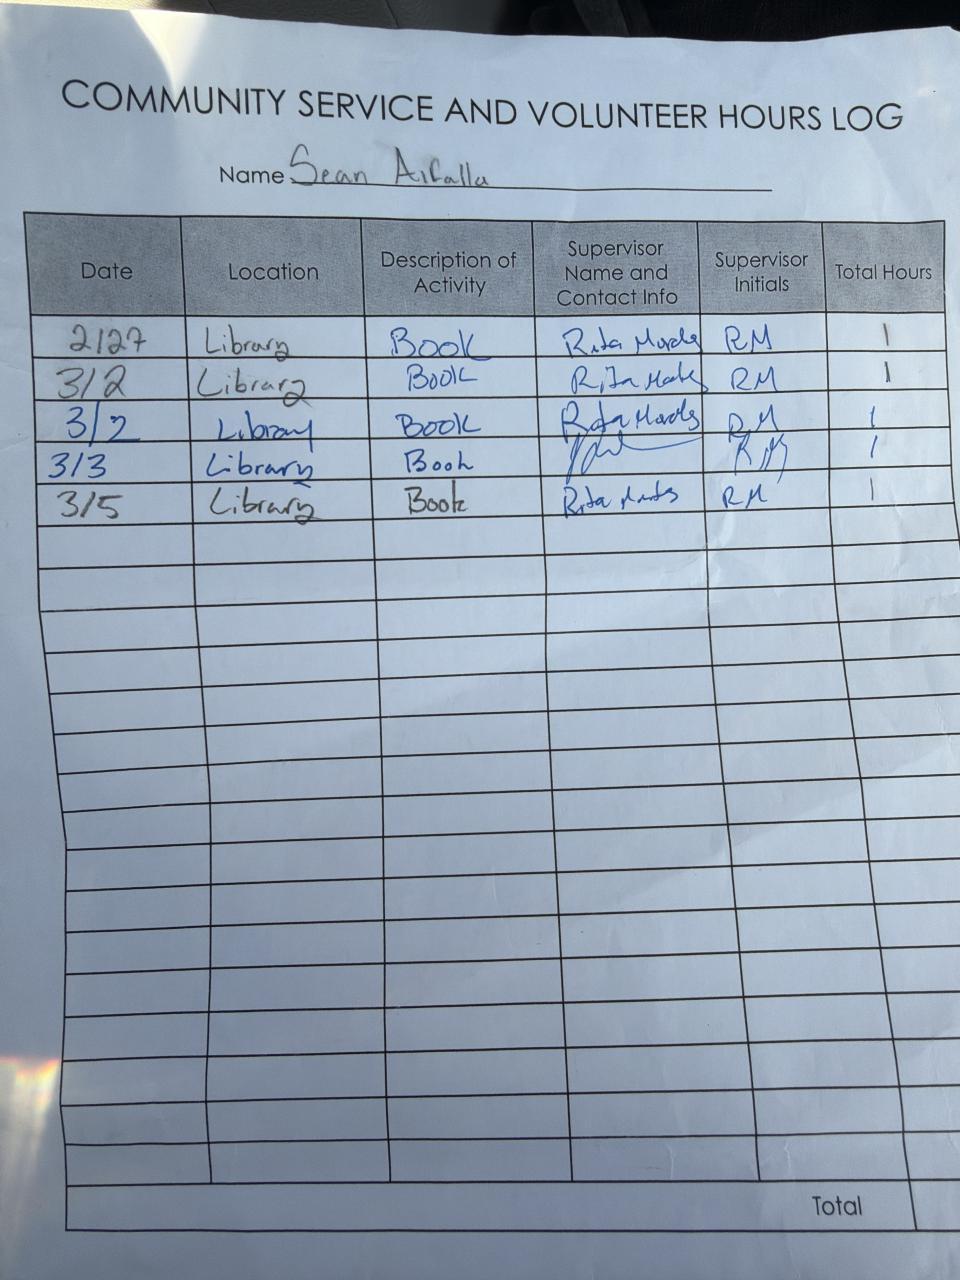 COMMUNITY SERVICE AND VOLUNTEER HOURS LOG
Name Sean
Date Location Description of Activity Supervisor Name and Contact Info Supervisor Initials Total Hours
2/27 Library Book Rita RM 1
3/2 Library Book Rita RM 1
3/2 Library Book Rita RM 1
3/3 Library Book RM 1
3/5 Library Book Rita RM 1
Total